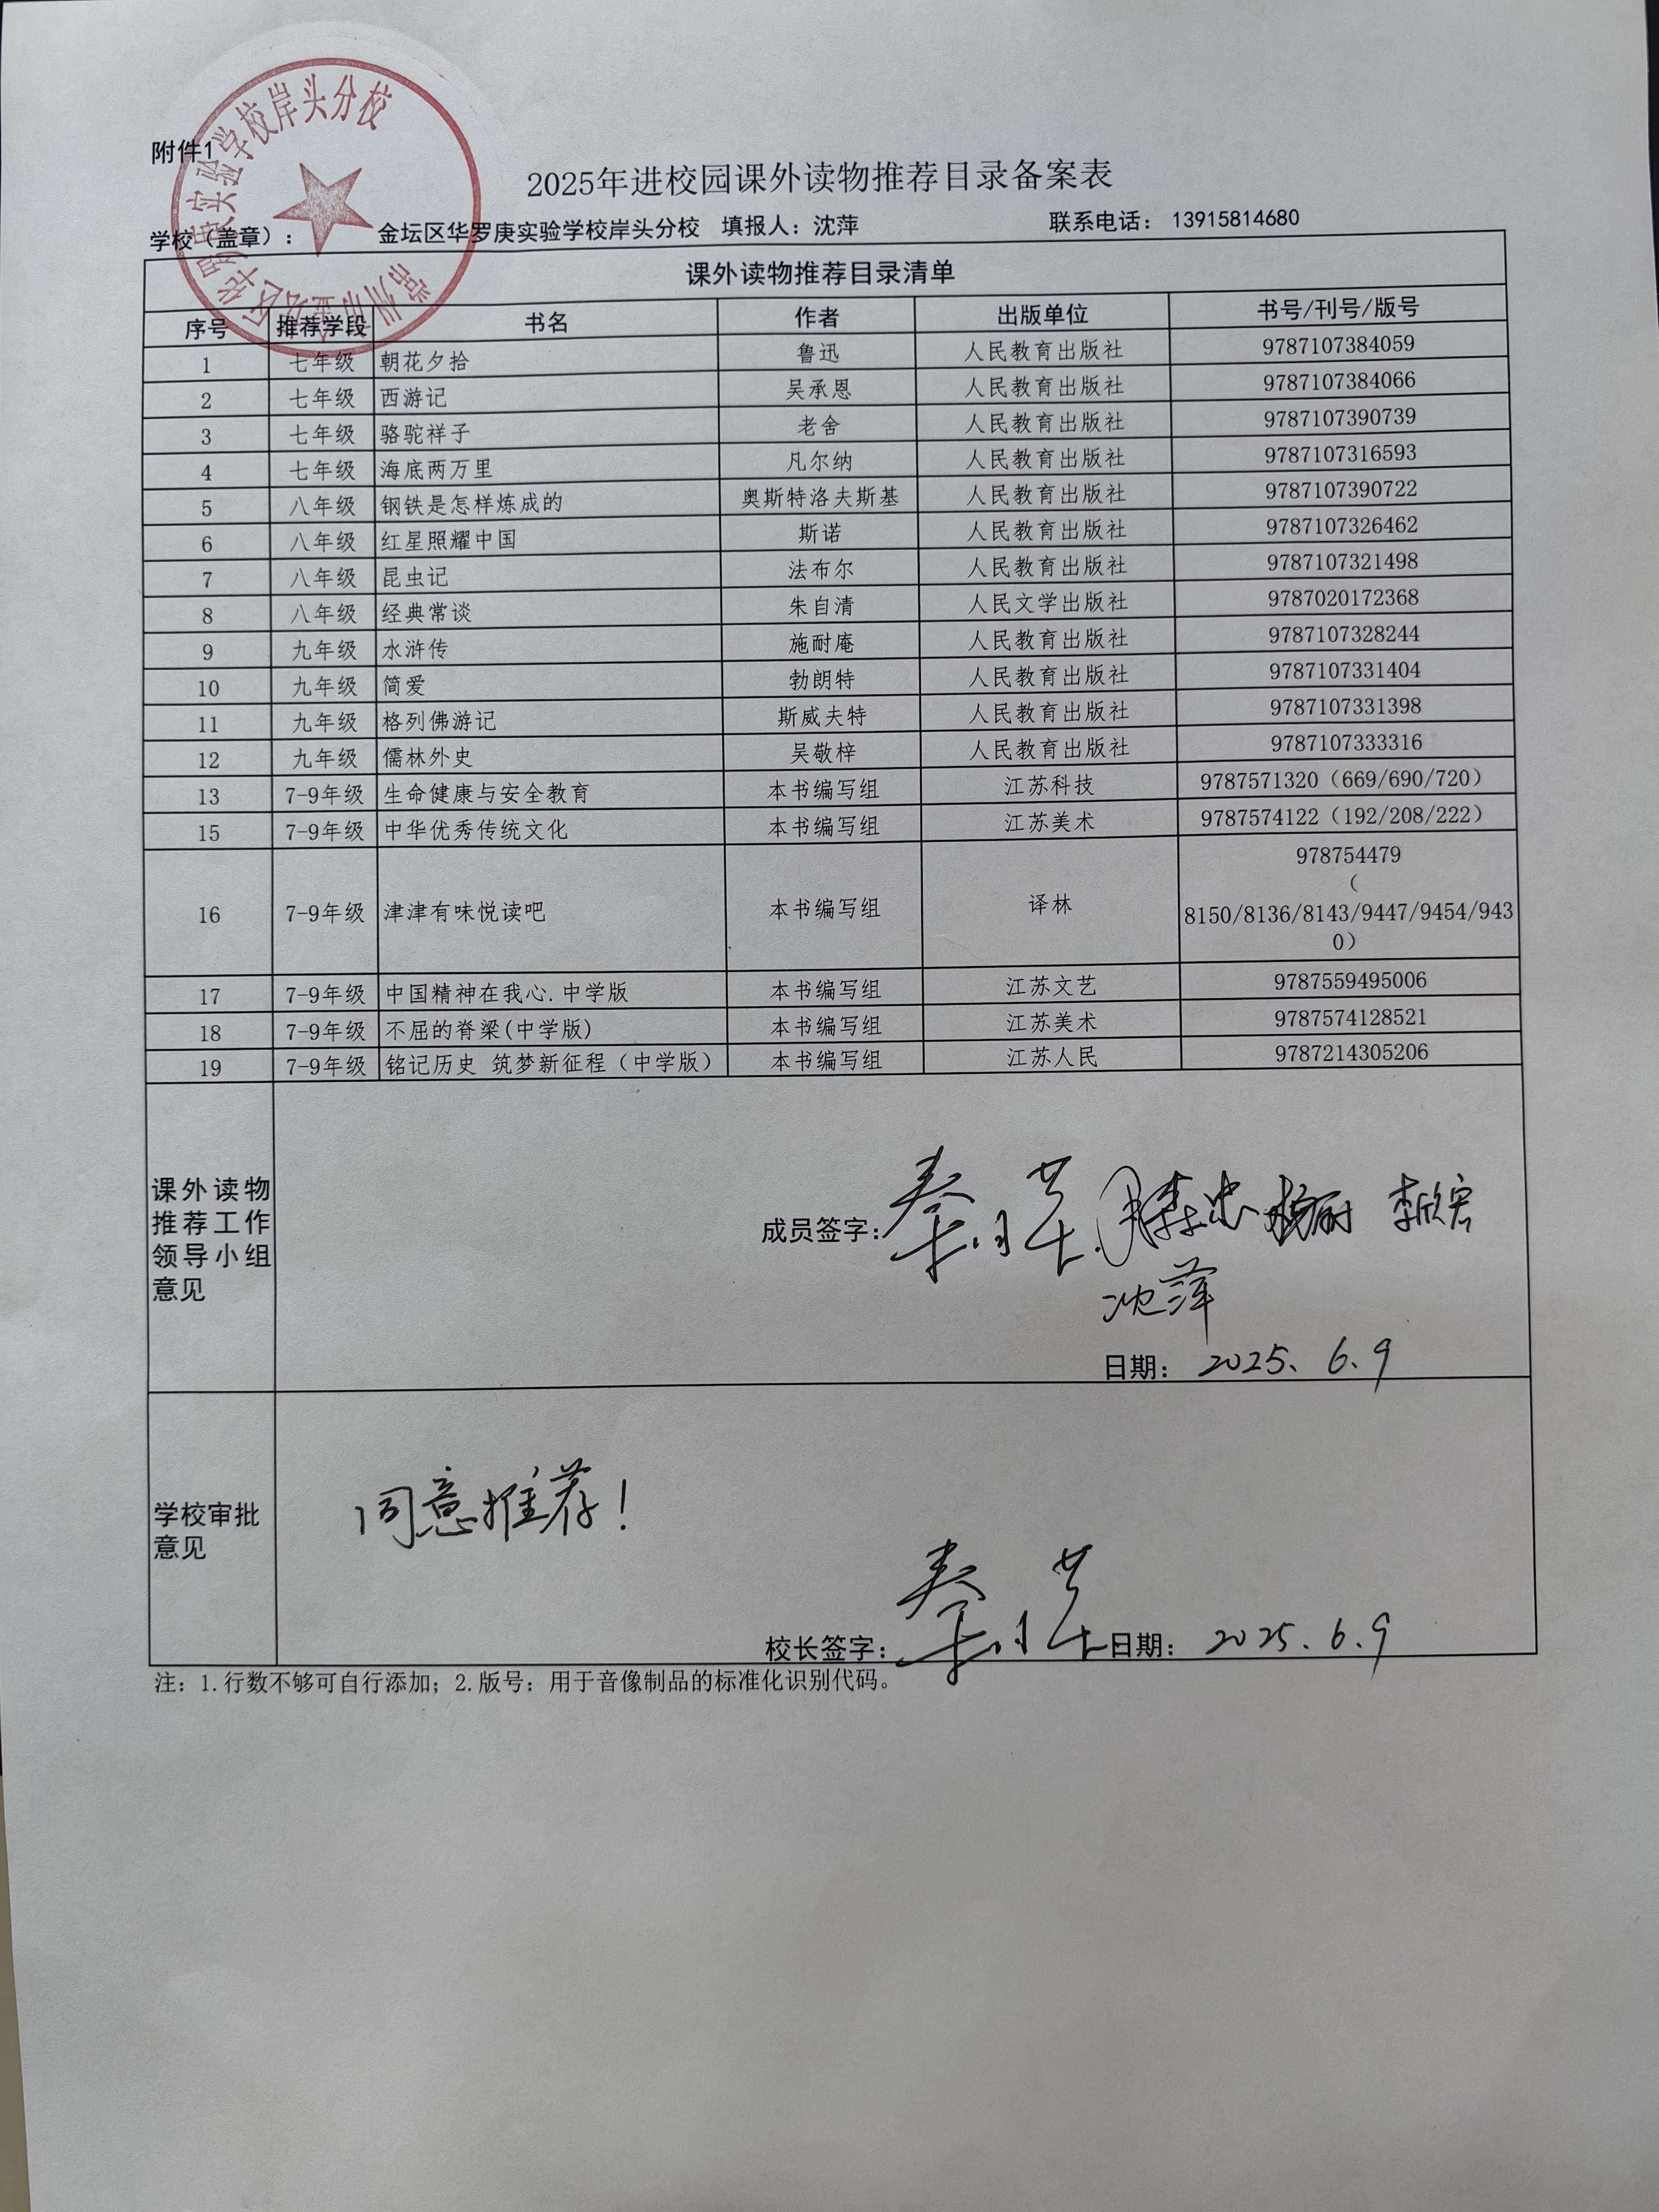 常州市金坛区华罗庚实验学校岸头分校
附件1
2025年进校园课外读物推荐目录备案表
学校（盖章）： 金坛区华罗庚实验学校岸头分校 填报人：沈萍 联系电话： 13915814680
课外读物推荐目录清单
序号 推荐学段 书名 作者 出版单位 书号/刊号/版号
1 七年级 朝花夕拾 鲁迅 人民教育出版社 9787107384059
2 七年级 西游记 吴承恩 人民教育出版社 9787107384066
3 七年级 骆驼祥子 老舍 人民教育出版社 9787107390739
4 七年级 海底两万里 凡尔纳 人民教育出版社 9787107316593
5 八年级 钢铁是怎样炼成的 奥斯特洛夫斯基 人民教育出版社 9787107390722
6 八年级 红星照耀中国 斯诺 人民教育出版社 9787107326462
7 八年级 昆虫记 法布尔 人民教育出版社 9787107321498
8 八年级 经典常谈 朱自清 人民文学出版社 9787020172368
9 九年级 水浒传 施耐庵 人民教育出版社 9787107328244
10 九年级 简爱 勃朗特 人民教育出版社 9787107331404
11 九年级 格列佛游记 斯威夫特 人民教育出版社 9787107331398
12 九年级 儒林外史 吴敬梓 人民教育出版社 9787107333316
13 7-9年级 生命健康与安全教育 本书编写组 江苏科技 9787571320（669/690/720）
15 7-9年级 中华优秀传统文化 本书编写组 江苏美术 9787574122（192/208/222）
16 7-9年级 津津有味悦读吧 本书编写组 译林 978754479
（
8150/8136/8143/9447/9454/943
0）
17 7-9年级 中国精神在我心.中学版 本书编写组 江苏文艺 9787559495006
18 7-9年级 不屈的脊梁(中学版) 本书编写组 江苏美术 9787574128521
19 7-9年级 铭记历史 筑梦新征程（中学版） 本书编写组 江苏人民 9787214305206
课外读物
推荐工作
领导小组
意见
成员签字： 李欣宏
沈萍
日期： 2025. 6. 9
学校审批
意见
同意推荐！
校长签字： 日期： 2025. 6. 9
注：1.行数不够可自行添加；2.版号：用于音像制品的标准化识别代码。